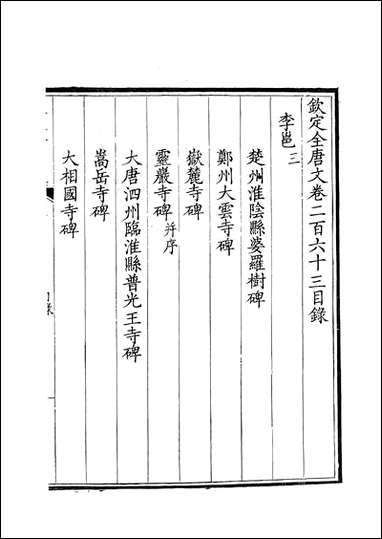 欽定全唐文卷二百六十三目錄
李邕三
楚州淮陰縣婆羅樹碑
鄭州大雲寺碑
嶽麓寺碑
靈巖寺碑并序
大唐泗州臨淮縣普光王寺碑
嵩岳寺碑
大相國寺碑